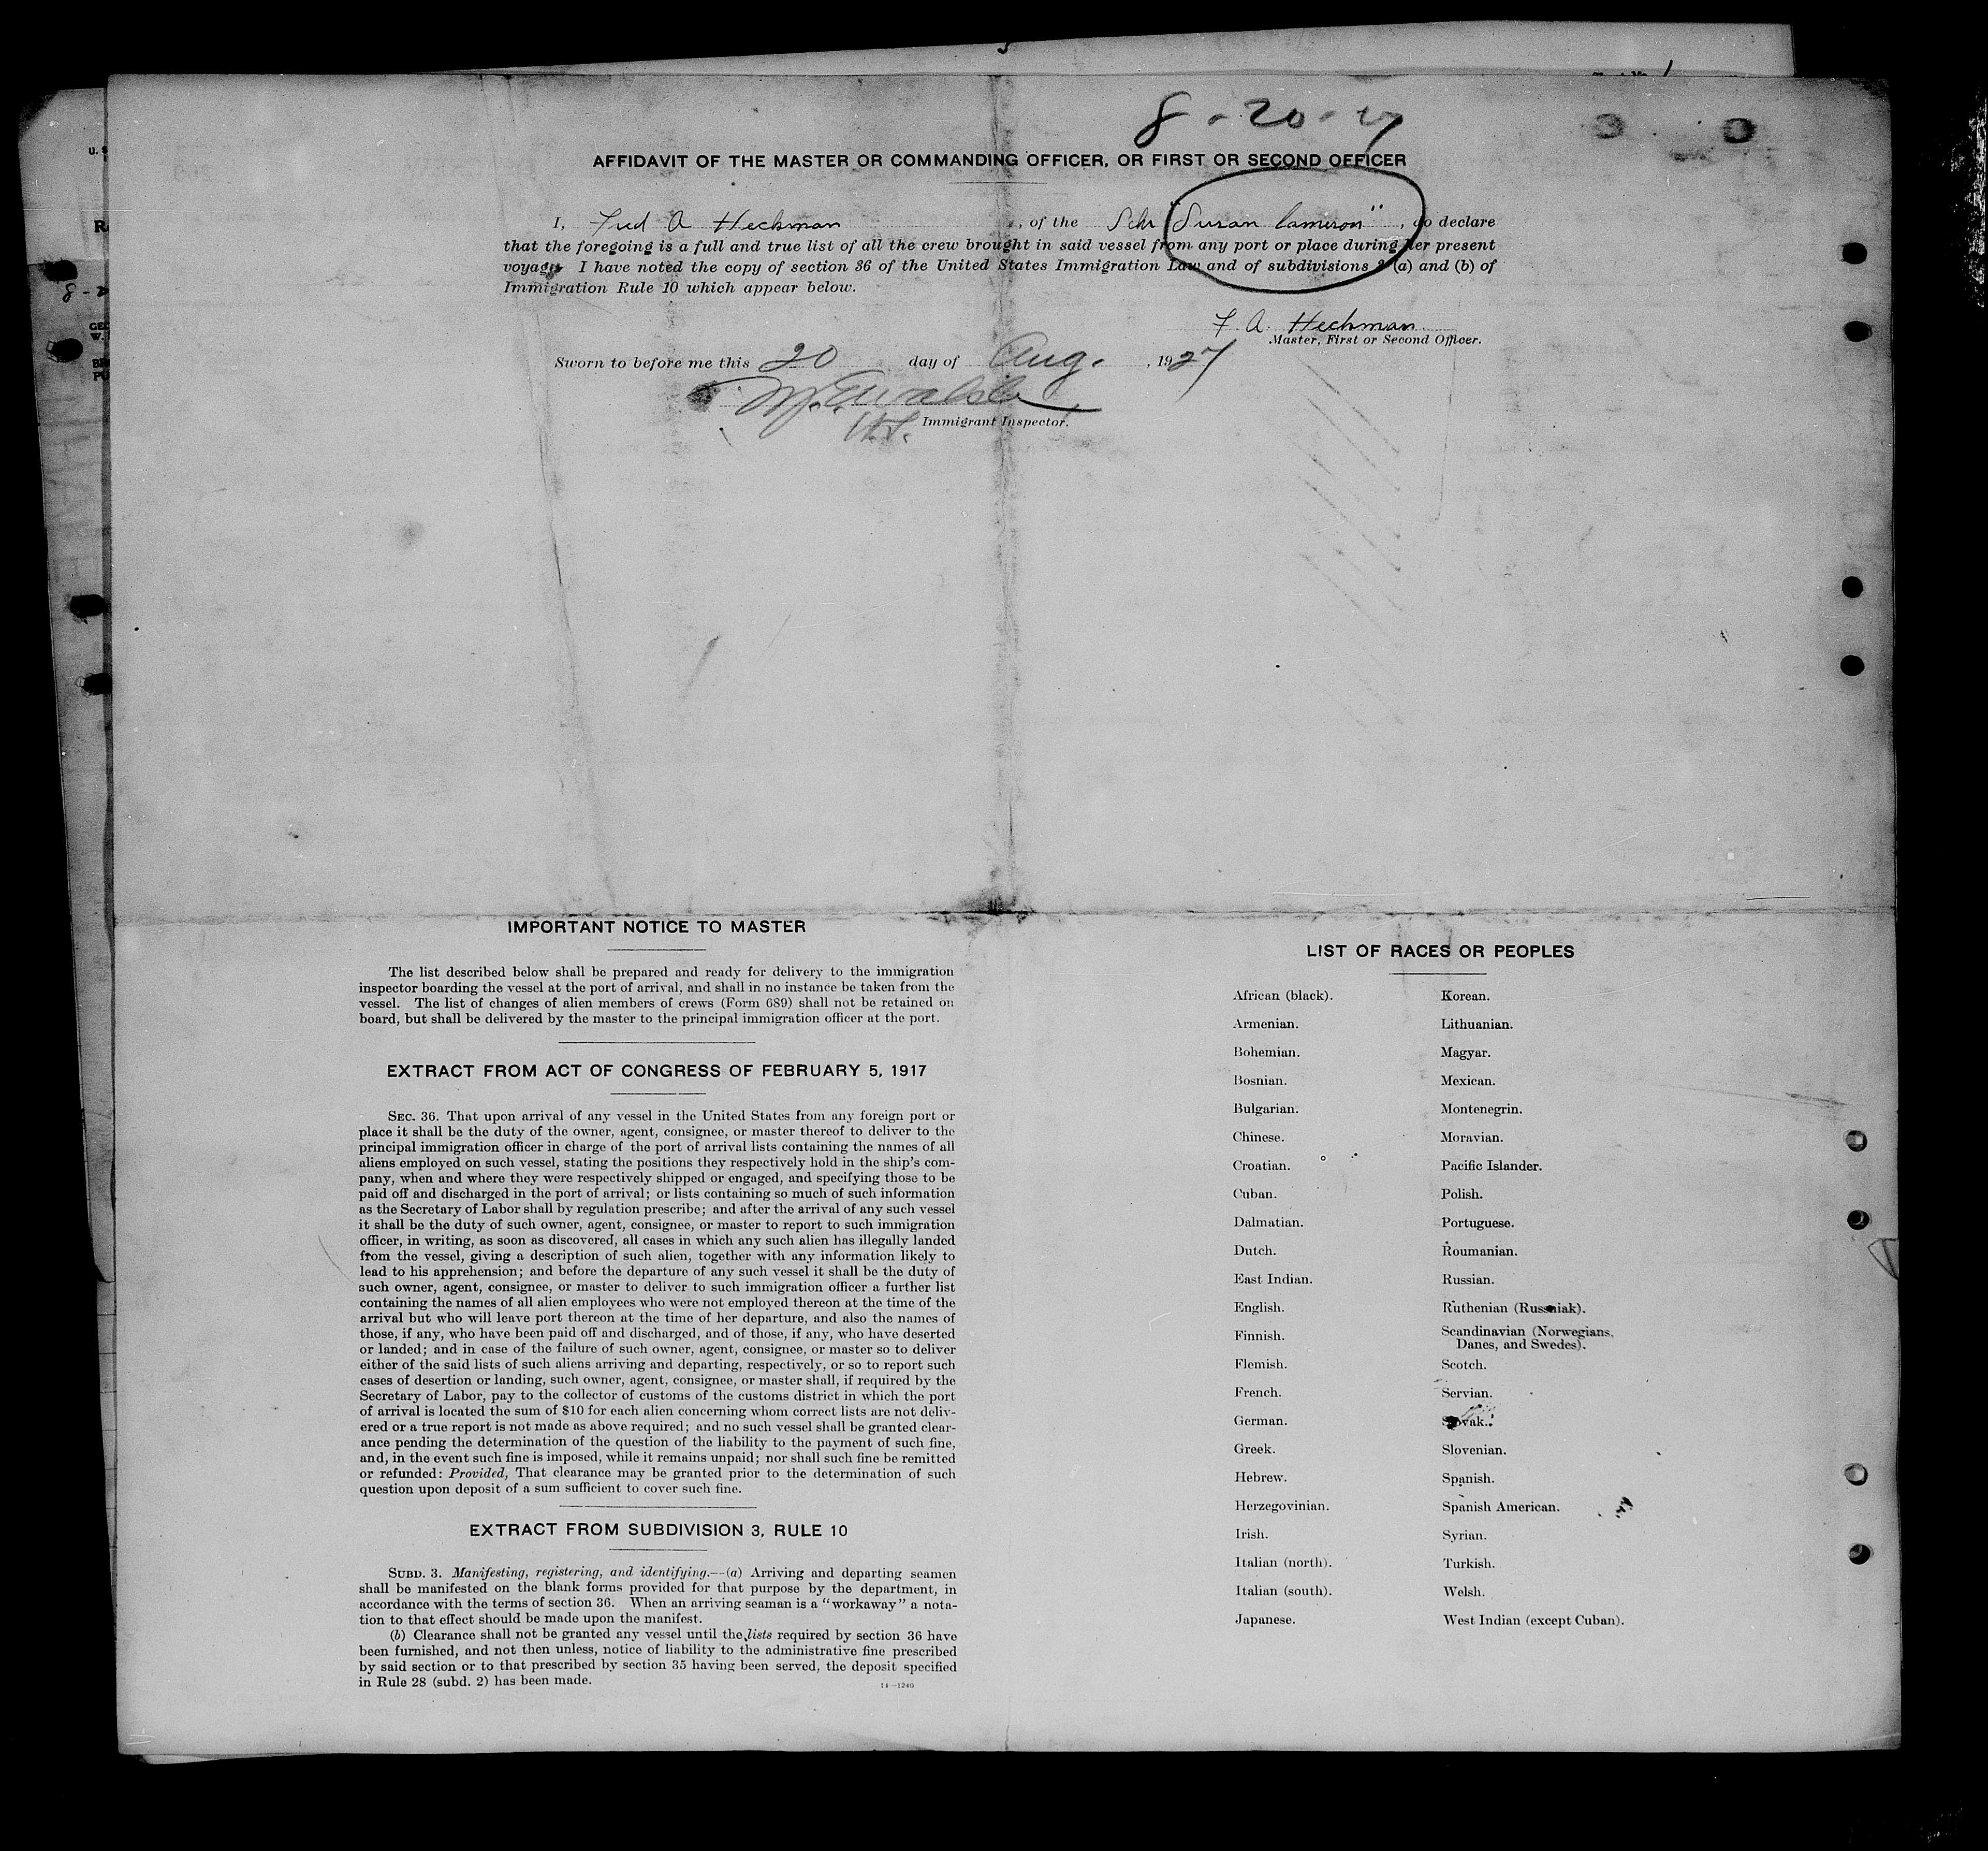 8-20-27
AFFIDAVIT OF THE MASTER OR COMMANDING OFFICER, OR FIRST OR SECOND OFFICER
I, Fred A Heckman, of the Schr "Susan Cameron", do declare
that the foregoing is a full and true list of all the crew brought in said vessel from any port or place during her present
voyage. I have noted the copy of section 36 of the United States Immigration Law and of subdivisions 3 (a) and (b) of
Immigration Rule 10 which appear below.
F. A. Heckman
Master, First or Second Officer.
Sworn to before me this 20 day of Aug., 1927
Immigrant Inspector.
IMPORTANT NOTICE TO MASTER
The list described below shall be prepared and ready for delivery to the immigration
inspector boarding the vessel at the port of arrival, and shall in no instance be taken from the
vessel. The list of changes of alien members of crews (Form 689) shall not be retained on
board, but shall be delivered by the master to the principal immigration officer at the port.
EXTRACT FROM ACT OF CONGRESS OF FEBRUARY 5, 1917
SEC. 36. That upon arrival of any vessel in the United States from any foreign port or
place it shall be the duty of the owner, agent, consignee, or master thereof to deliver to the
principal immigration officer in charge of the port of arrival lists containing the names of all
aliens employed on such vessel, stating the positions they respectively hold in the ship's com-
pany, when and where they were respectively shipped or engaged, and specifying those to be
paid off and discharged in the port of arrival; or lists containing so much of such information
as the Secretary of Labor shall by regulation prescribe; and after the arrival of any such vessel
it shall be the duty of such owner, agent, consignee, or master to report to such immigration
officer, in writing, as soon as discovered, all cases in which any such alien has illegally landed
from the vessel, giving a description of such alien, together with any information likely to
lead to his apprehension; and before the departure of any such vessel it shall be the duty of
such owner, agent, consignee, or master to deliver to such immigration officer a further list
containing the names of all alien employees who were not employed thereon at the time of the
arrival but who will leave port thereon at the time of her departure, and also the names of
those, if any, who have been paid off and discharged, and of those, if any, who have deserted
or landed; and in case of the failure of such owner, agent, consignee, or master so to deliver
either of the said lists of such aliens arriving and departing, respectively, or so to report such
cases of desertion or landing, such owner, agent, consignee, or master shall, if required by the
Secretary of Labor, pay to the collector of customs of the customs district in which the port
of arrival is located the sum of $10 for each alien concerning whom correct lists are not deliv-
ered or a true report is not made as above required; and no such vessel shall be granted clear-
ance pending the determination of the question of the liability to the payment of such fine,
and, in the event such fine is imposed, while it remains unpaid; nor shall such fine be remitted
or refunded: Provided, That clearance may be granted prior to the determination of such
question upon deposit of a sum sufficient to cover such fine.
EXTRACT FROM SUBDIVISION 3, RULE 10
SUBD. 3. Manifesting, registering, and identifying.—(a) Arriving and departing seamen
shall be manifested on the blank forms provided for that purpose by the department, in
accordance with the terms of section 36. When an arriving seaman is a "workaway" a nota-
tion to that effect should be made upon the manifest.
(b) Clearance shall not be granted any vessel until the lists required by section 36 have
been furnished, and not then unless, notice of liability to the administrative fine prescribed
by said section or to that prescribed by section 35 having been served, the deposit specified
in Rule 28 (subd. 2) has been made.
14—1240
LIST OF RACES OR PEOPLES
African (black).
Armenian.
Bohemian.
Bosnian.
Bulgarian.
Chinese.
Croatian.
Cuban.
Dalmatian.
Dutch.
East Indian.
English.
Finnish.
Flemish.
French.
German.
Greek.
Hebrew.
Herzegovinian.
Irish.
Italian (north).
Italian (south).
Japanese.
Korean.
Lithuanian.
Magyar.
Mexican.
Montenegrin.
Moravian.
Pacific Islander.
Polish.
Portuguese.
Roumanian.
Russian.
Ruthenian (Russniak).
Scandinavian (Norwegians,
Danes, and Swedes).
Scotch.
Servian.
Slovak.
Slovenian.
Spanish.
Spanish American.
Syrian.
Turkish.
Welsh.
West Indian (except Cuban).